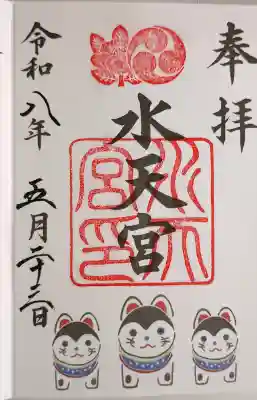 奉拝
水天宮
水天宮印
令和八年 五月二十三日